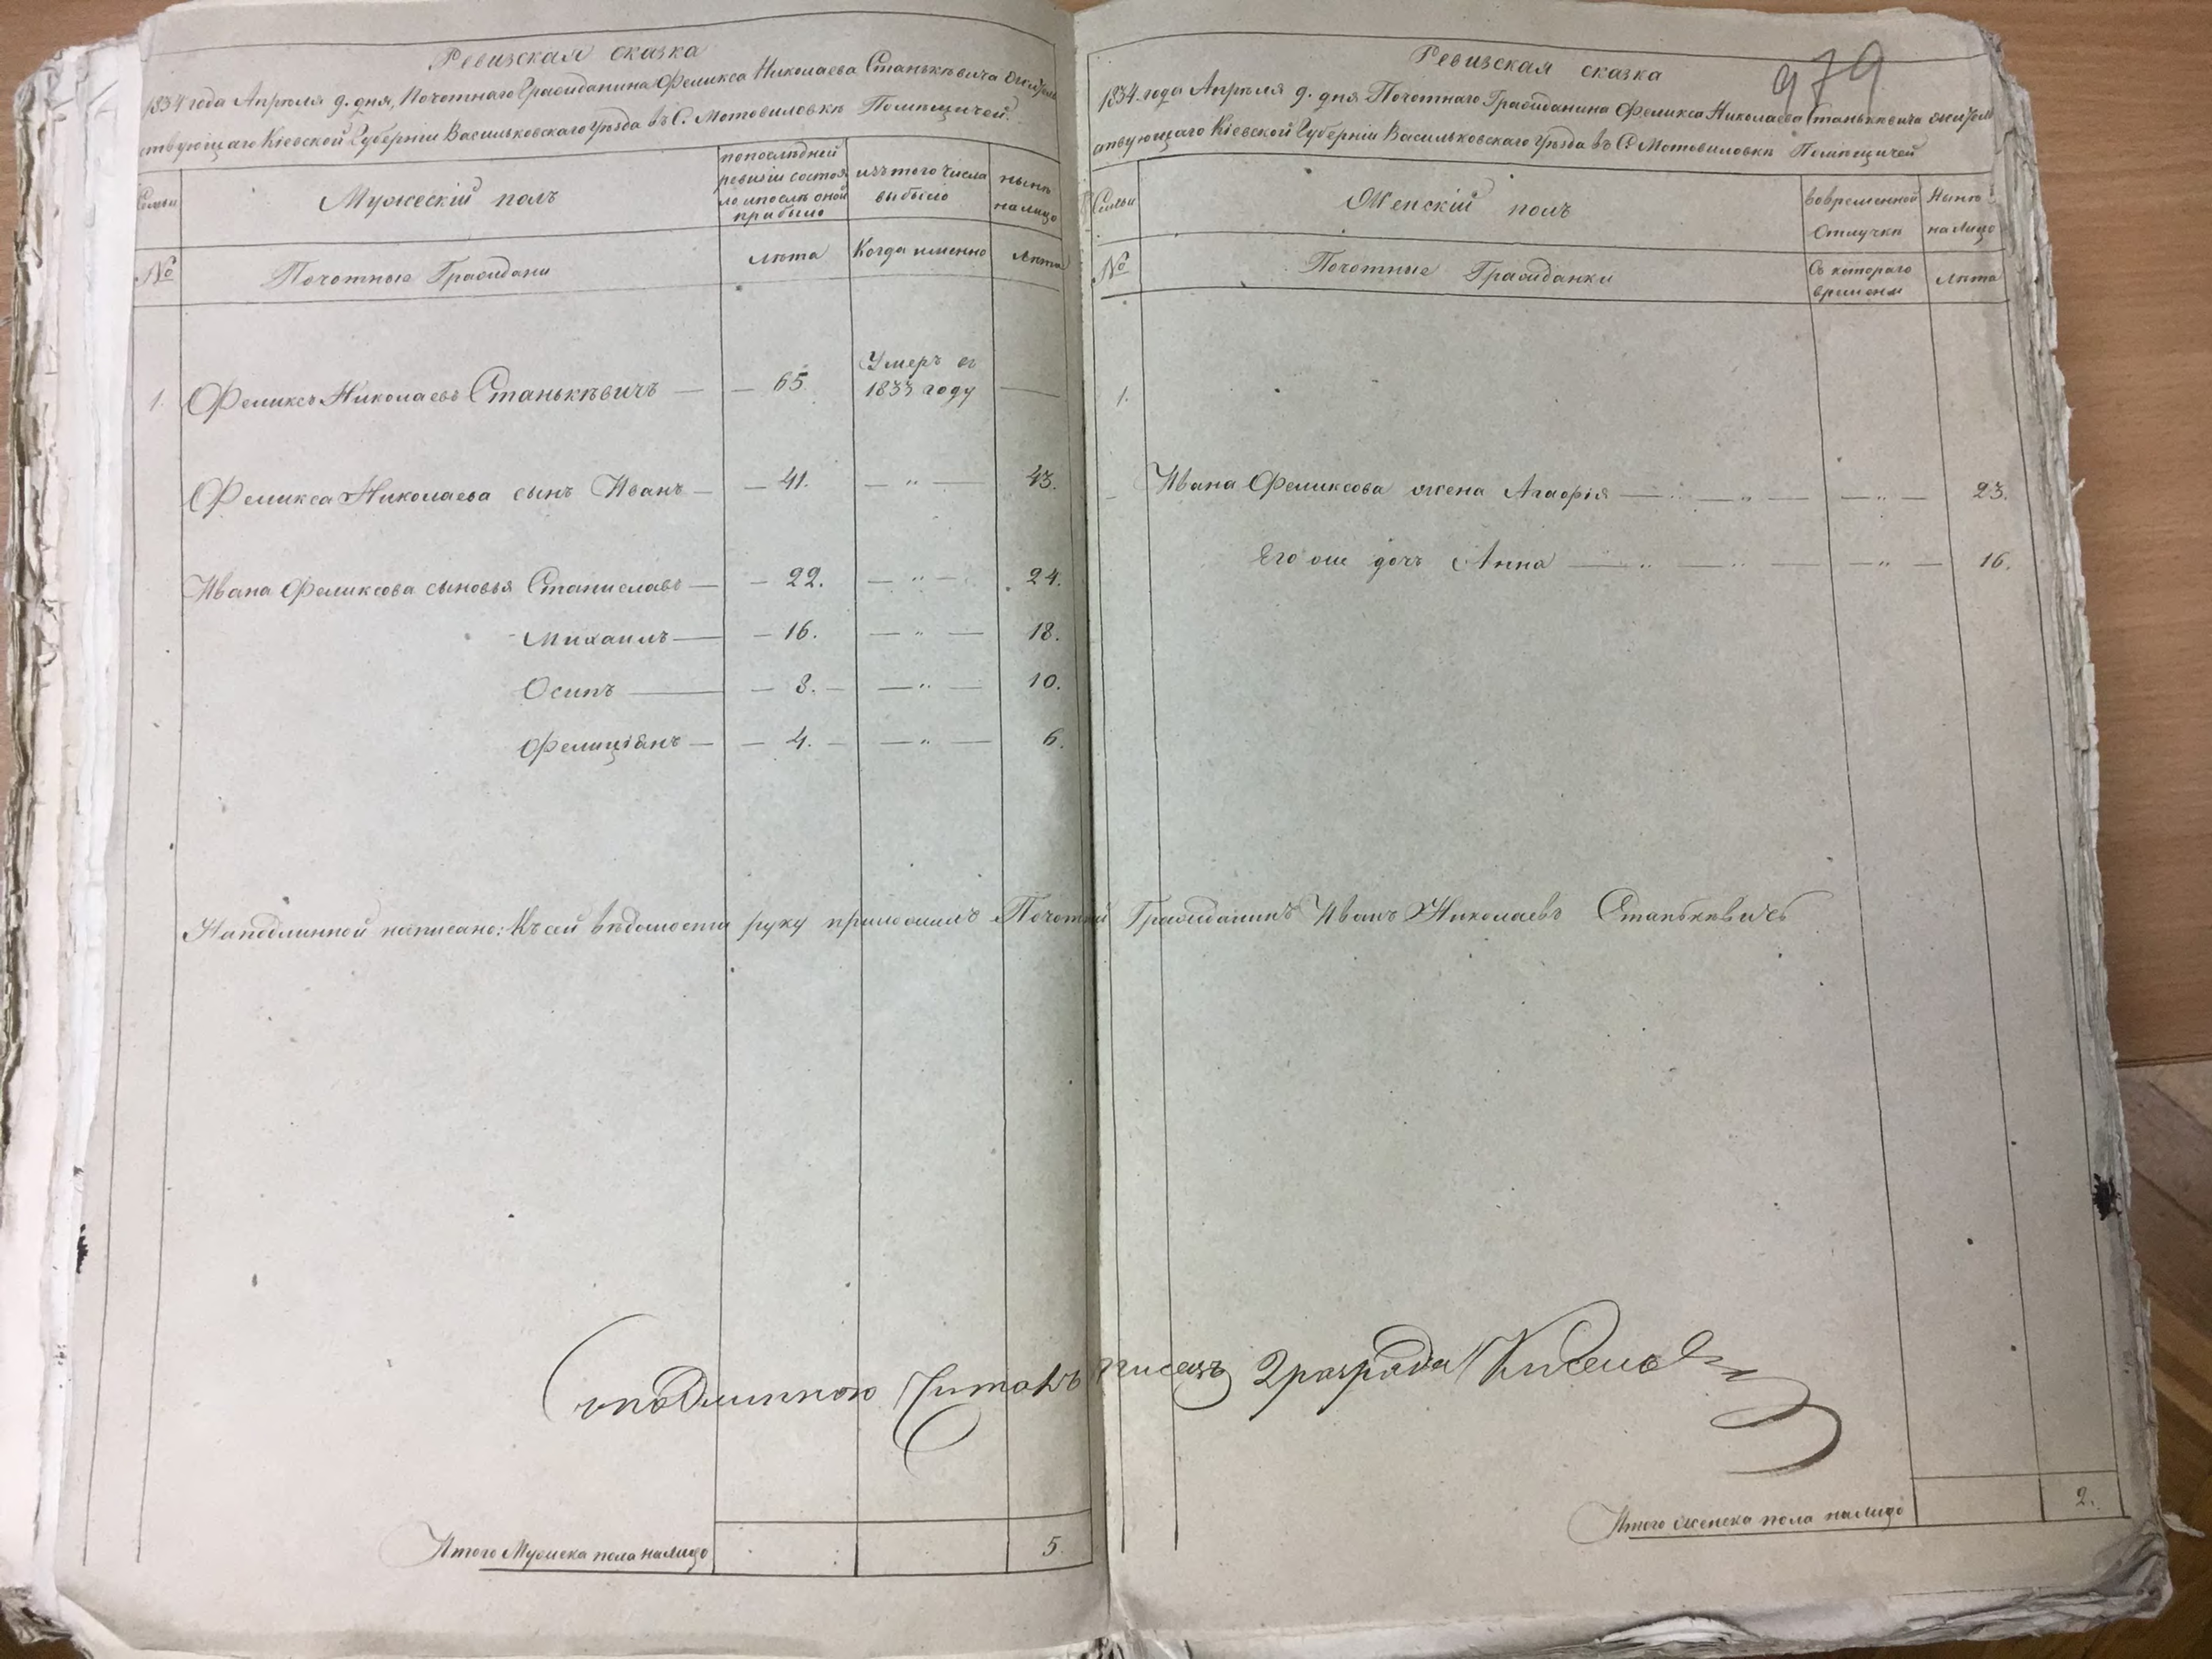 Ревизская сказка
1834 года Апреля 9. дня, Почотнаго Гражданина Феликса Николаева Станькѣвича жител
ствующаго Кіевской Губерніи Васильковскаго Уѣзда въ С. Мотовиловкѣ Помѣщичей.
Семьи
Мужескій полъ
по послѣдней
ревизіи состоя
ло и послѣ оной
прибыло
изъ того числа
выбыло
нынѣ
на лицо
№
Почотные Граждани
лѣта
Когда именно
лѣта
1. Феликсъ Николаевъ Станькѣвичъ — — 65. Умеръ въ
1833 году —
Феликса Николаева сынъ Иванъ — — 41. — „ — 43.
Ивана Феликсова сыновья Станиславъ — — 22. — „ — 24.
Михаилъ — — 16. — „ — 18.
Осипъ — — 8. — — „ — 10.
Фелиціянъ — — 4. — — „ — 6.
На подлинной написано: Къ сей вѣдомости руку приложилъ Почотный Гражданинъ Иванъ Николаевъ Станькѣвичь
Съ подлинною Читалъ писецъ 2 разряда Киселев
Итого Мужска пола на лицо 5.
979
Ревизская сказка
1834. года Апреля 9. дня Почотнаго Гражданина Феликса Николаева Станькѣвича жител
ствующаго Кіевской Губерніи Васильковскаго Уѣзда въ С. Мотовиловкѣ Помѣщичей
Семьи
Женскій полъ
во временной
Отлучкѣ
Нынѣ
на лицо
№
Почотные Гражданки
Съ котораго
времени
лѣта
1.
Ивана Феликсова жена Агафія — „ — „ — — „ — 23.
Его же дочь Анна — „ — „ — — „ — 16.
Итого женска пола на лицо 2.